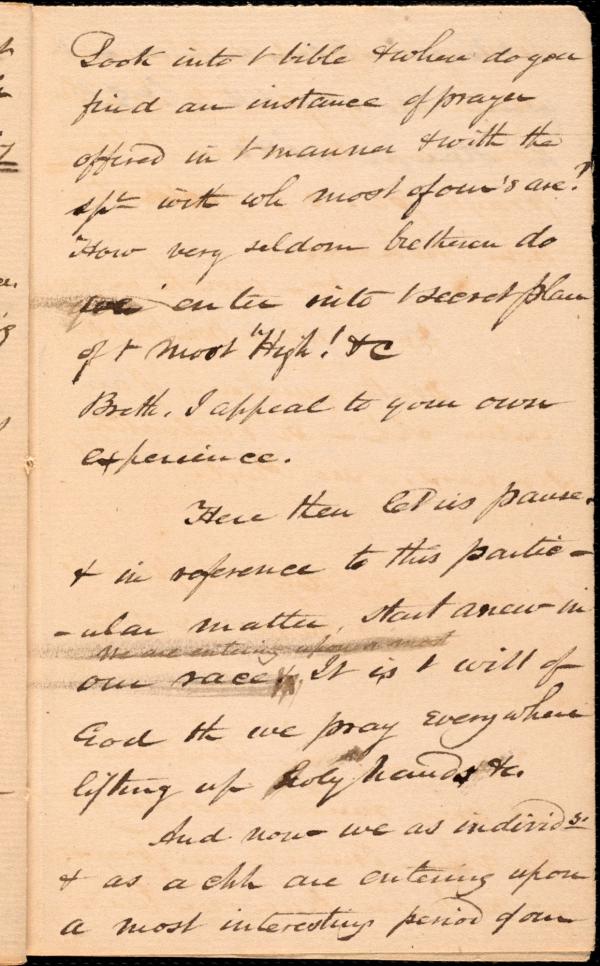 Look into t bible & where do you
find an instance of prayer
offered in t manner & with the
spt with wh most of our's are?
How very seldom bretheren do
we enter into t secret place
of t most "High! &c
Breth. I appeal to your own
experience.
Here then let us pause.
& in reference to this partic-
-ular matter, start anew in
We are entering upon a most
our race. It is t will of
God th we pray everywhere
lifting up holy hands &c.
And now we as individs.
& as a chh are entering upon
a most interesting period of our